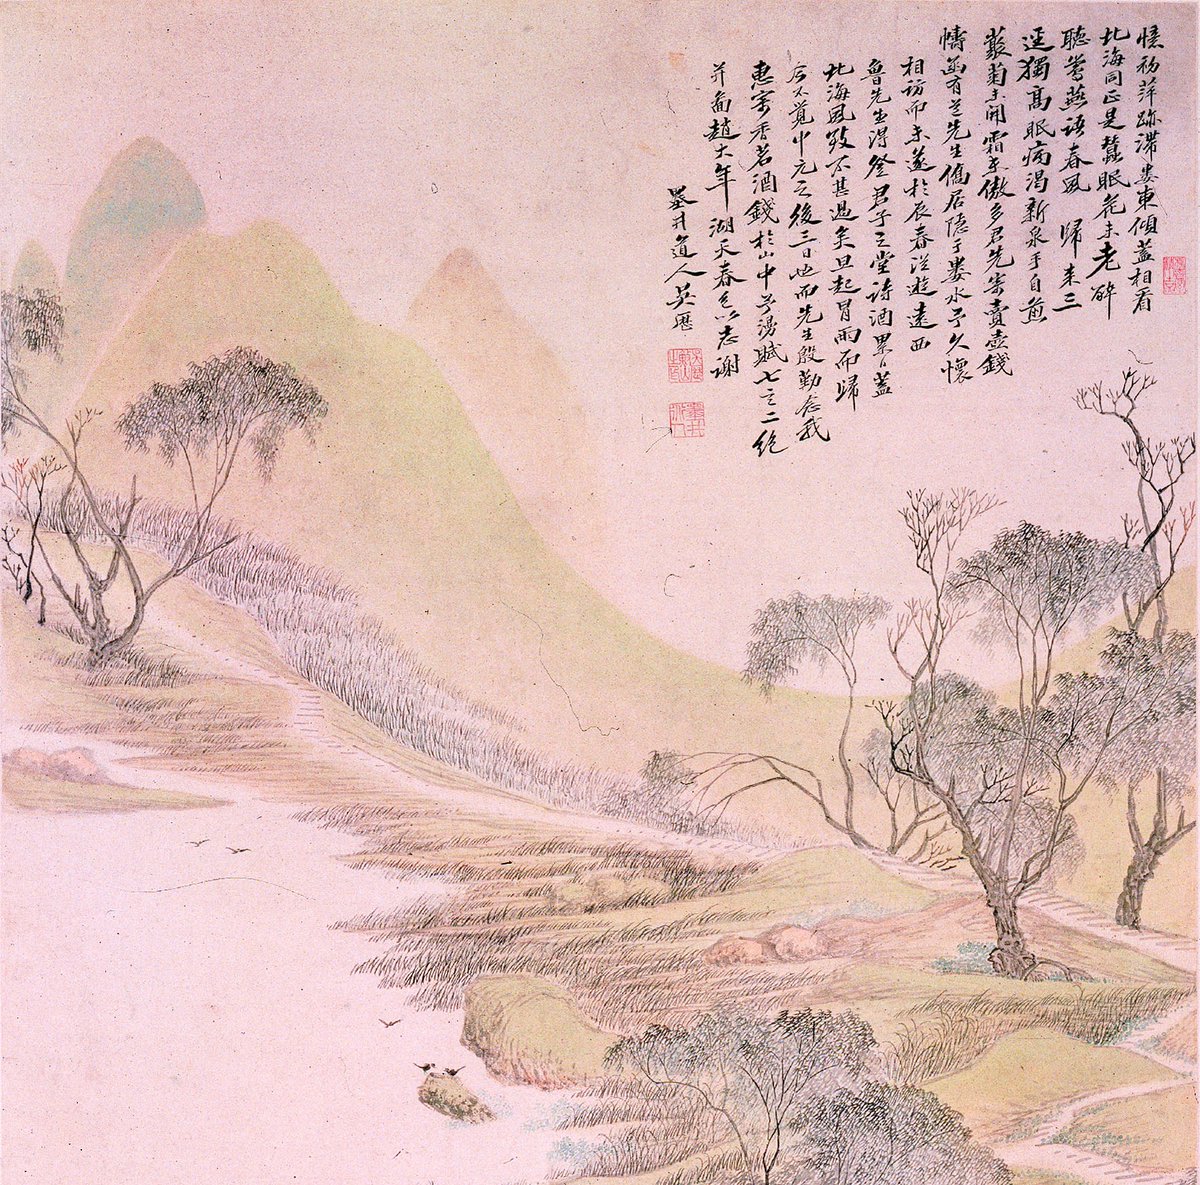 憶初萍跡滯婁東傾蓋相看
北海同正是蠶眠花未老醉
聽鶯燕語春風 歸來三
逕獨高眠病渴新泉手自煎
叢菊未開霜未傲多君先寄賣壺錢
幬函有道先生僑居隱于婁水予久懷
相訪而未遂於辰春從遊遠西
魯先生得登君子之堂詩酒累日蓋
北海風致不甚過矣旦起冒雨而歸
今不覺中元之後三日也而先生殷勤念我
惠寄香茗酒錢於山中予漫賦七言二絕
并圖趙大年湖天春色以志謝
墨井道人吳歷